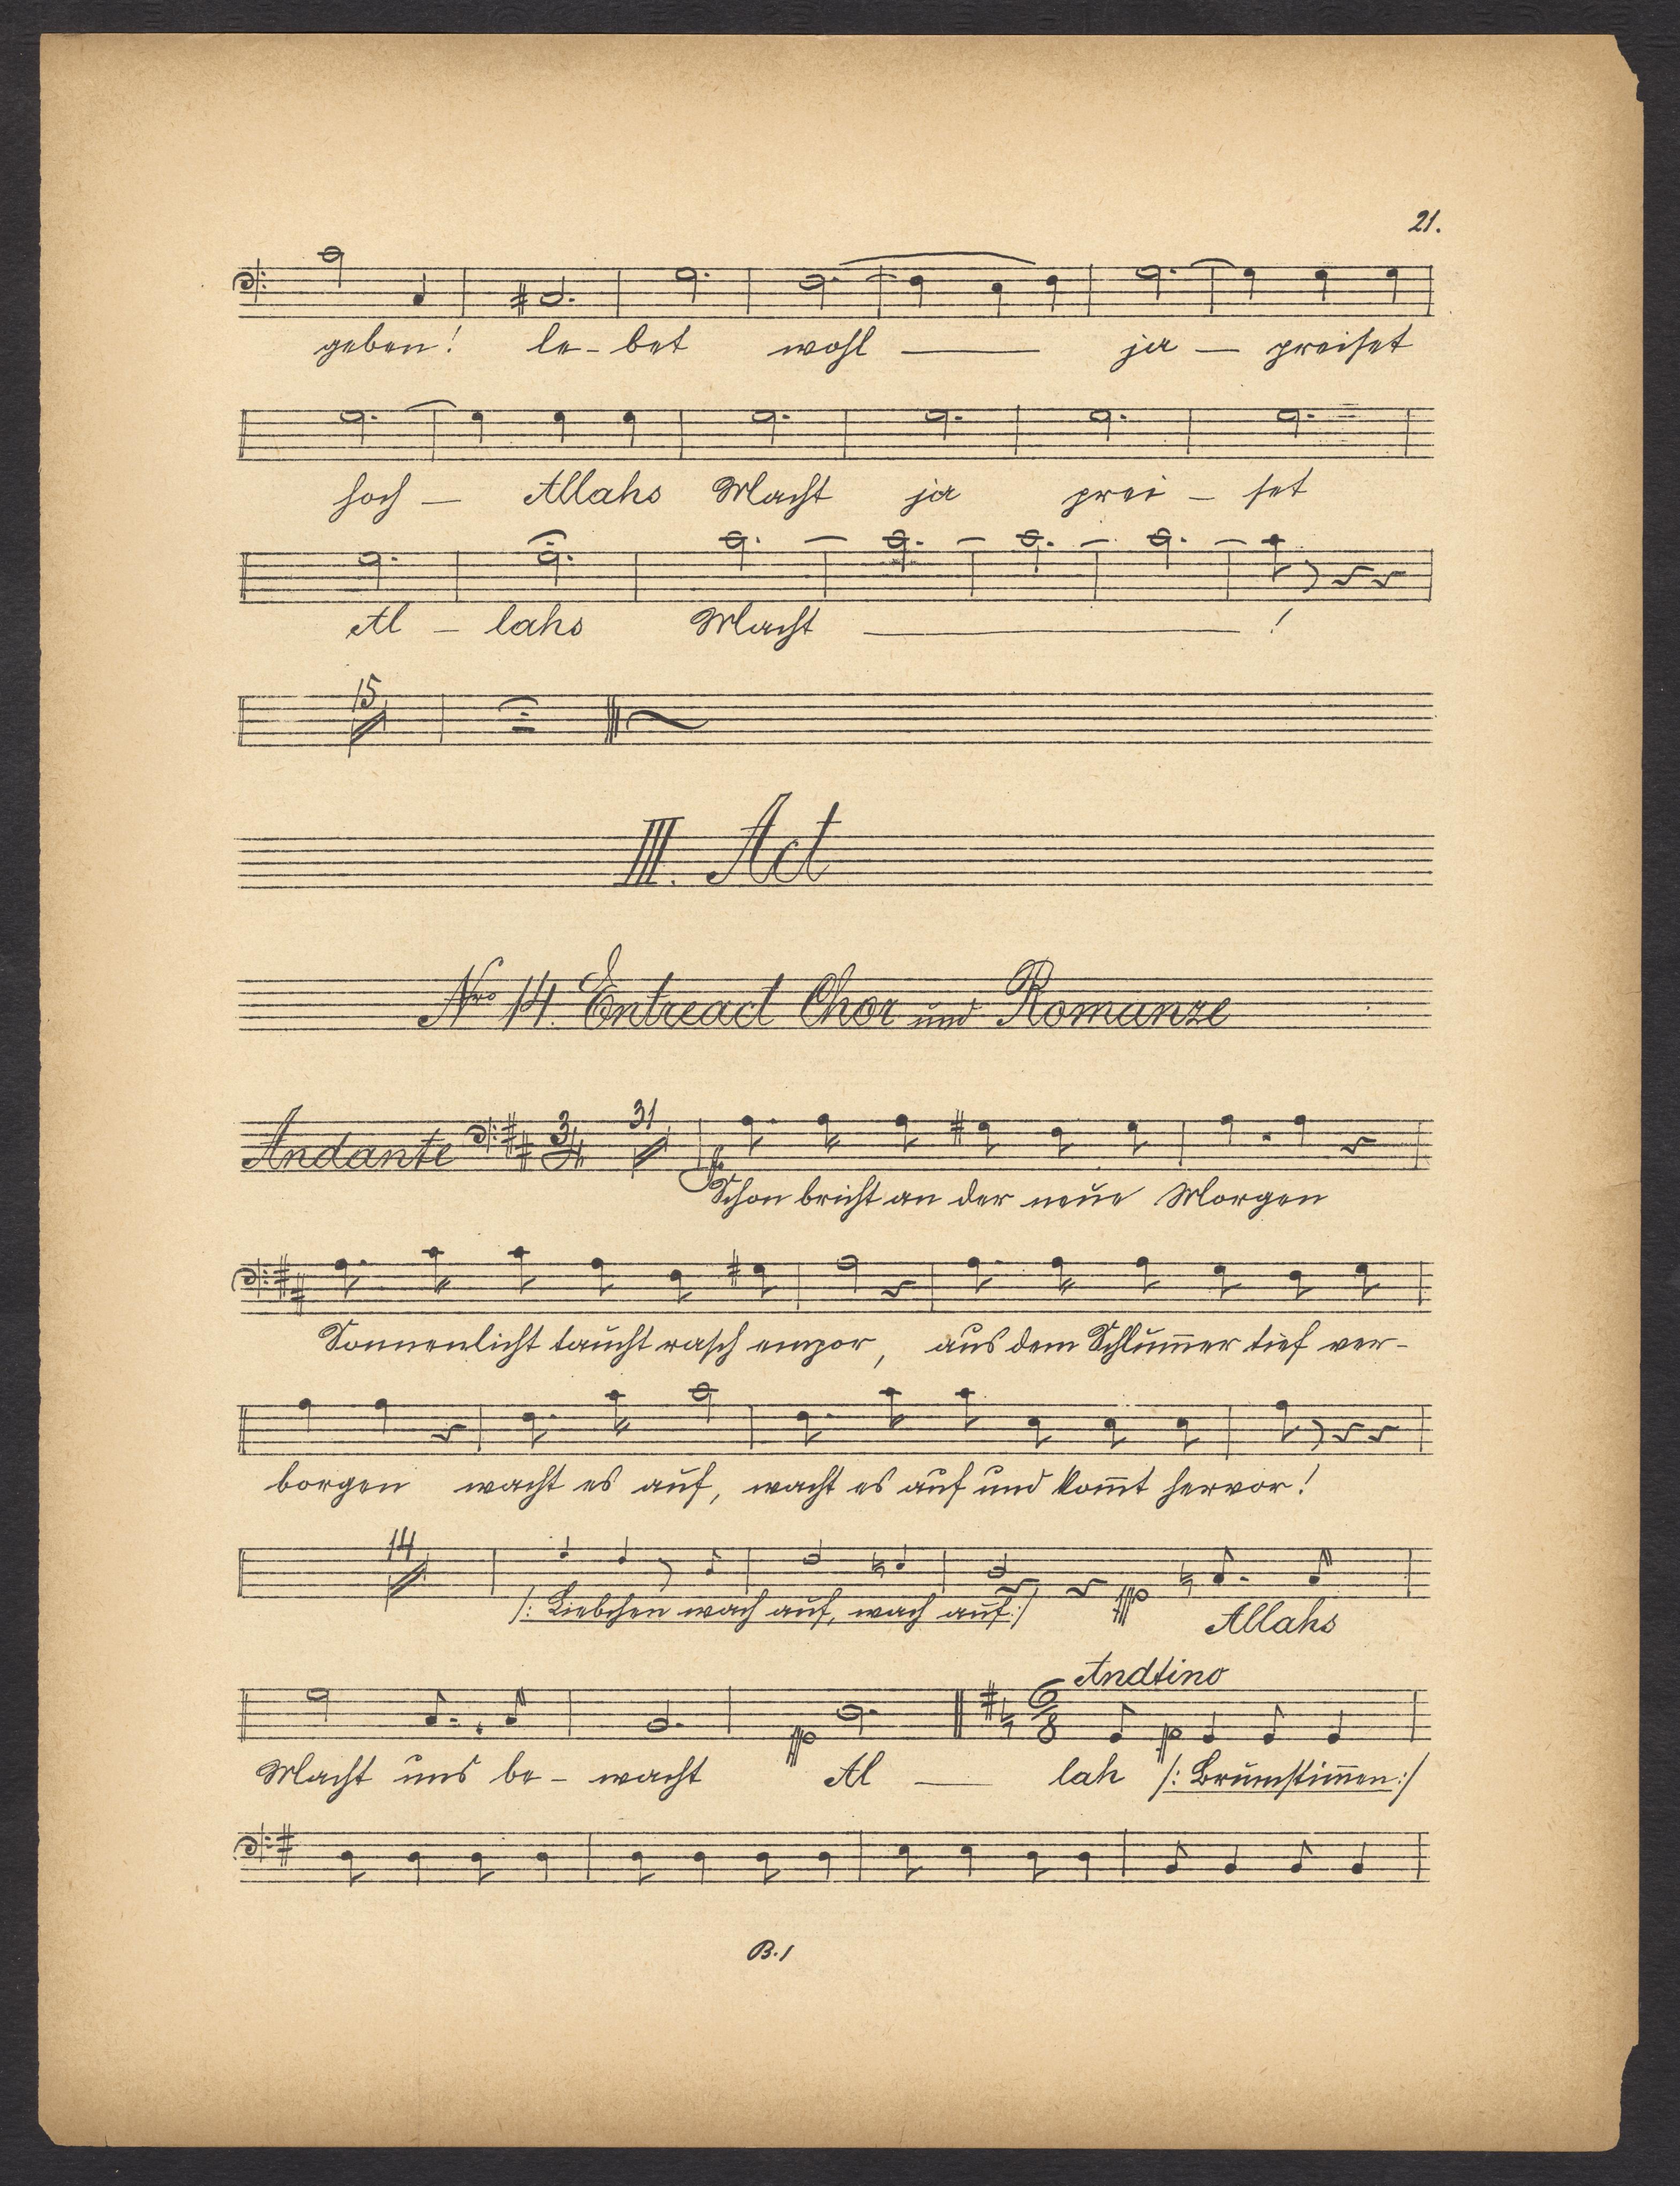 21.
geben! le-bet wohl — ja — preiset
hoch — Allahs Macht ja prei – set
Al – lahs Macht — !
15
III. Act
Nro 14. Entreact Chor und Romanze
31
Andante 3/4 p
Schon bricht an der neue Morgen
Sonnenlicht taucht rasch empor, aus dem Schlum̄er tief ver-
borgen wacht es auf, wacht es auf und kom̄t hervor!
14
/: Liebchen wach auf, wach auf :/ ppp Allahs
Andtino
6/8
Macht uns be – wacht pp Al — lah pp /: Brum̄stim̄en :/
B. 1